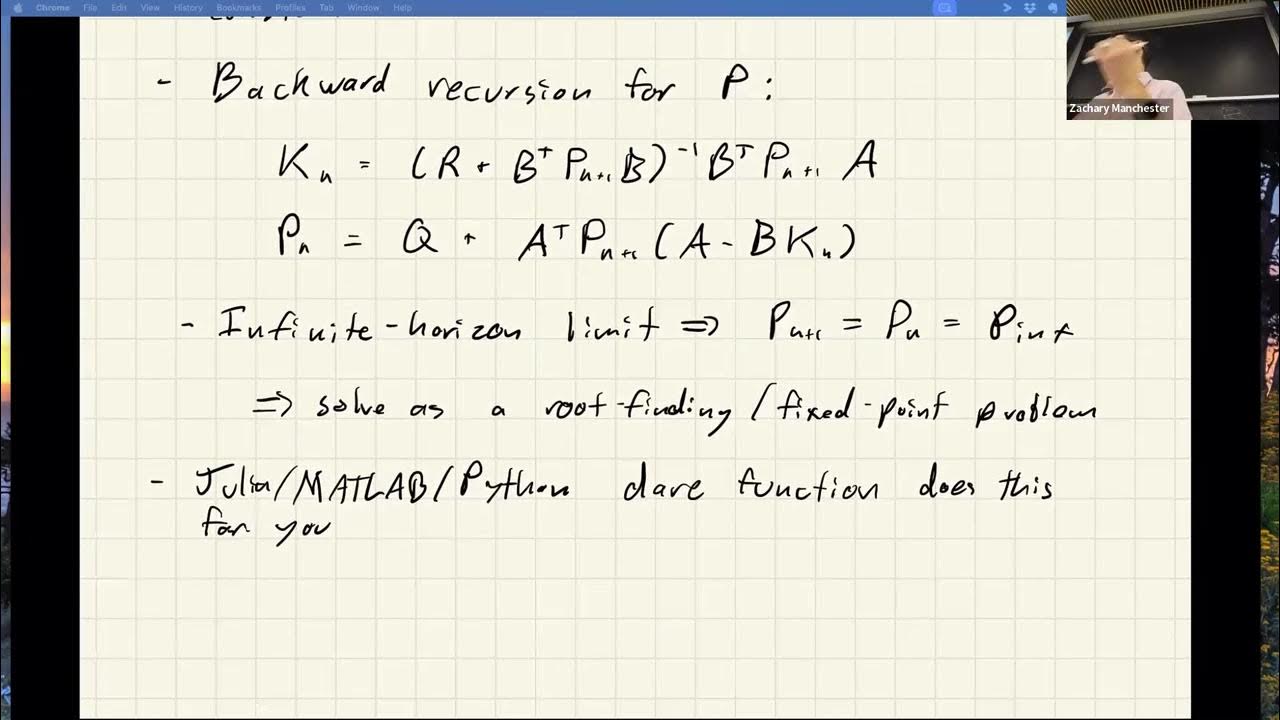 Chrome File Edit View History Bookmarks Profiles Tab Window Help
Zachary Manchester
- Backward recursion for P:
Kₙ = (R + BᵀPₙ₊₁B)⁻¹BᵀPₙ₊₁ A
Pₙ = Q + AᵀPₙ₊₁(A - BKₙ)
- Infinite-horizon limit ⇒ Pₙ₊₁ = Pₙ = Pinf
⇒ solve as a root-finding/fixed-point problem
- Julia/MATLAB/Python dare function does this
for you